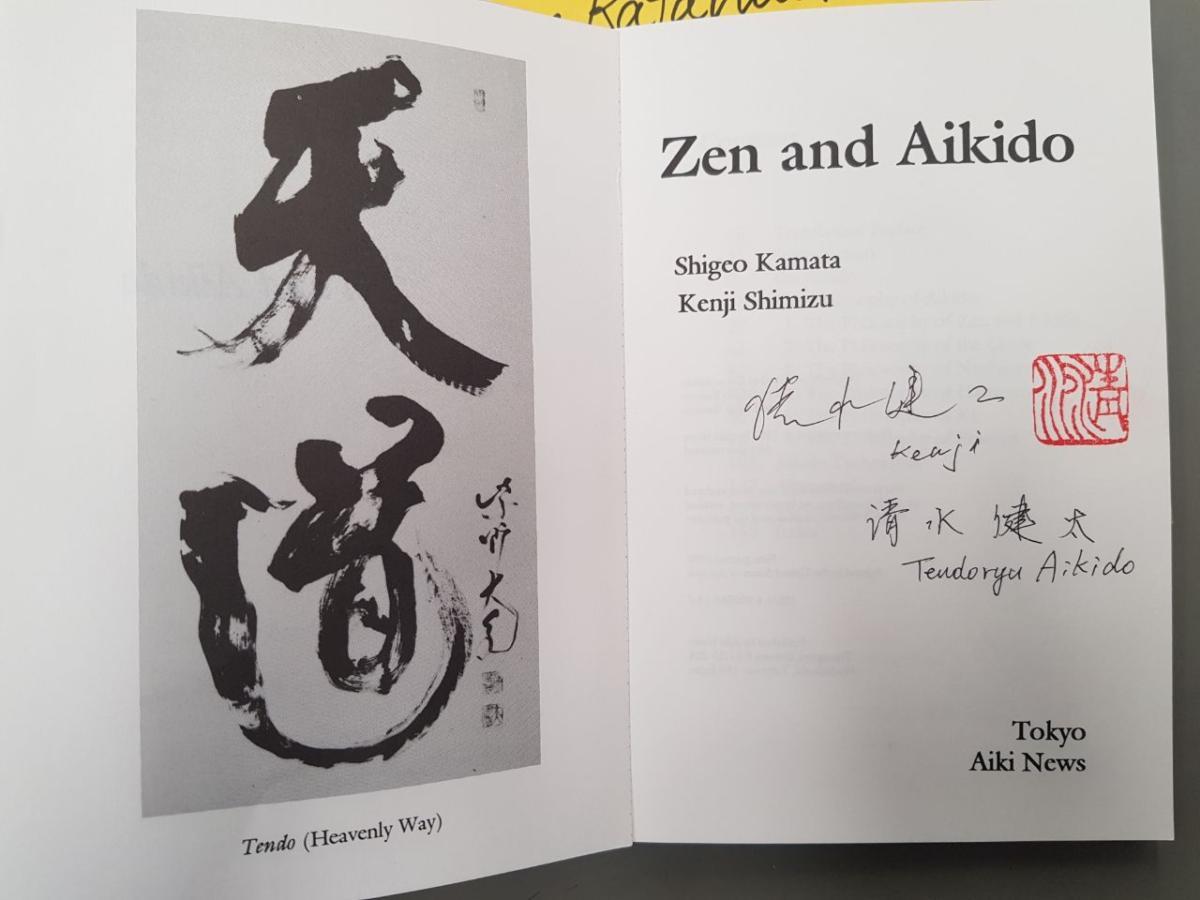 天
道
Tendo (Heavenly Way)
Zen and Aikido
Shigeo Kamata
Kenji Shimizu
清水健二
Kenji
清水
清水健太
Tendoryu Aikido
Tokyo
Aiki News